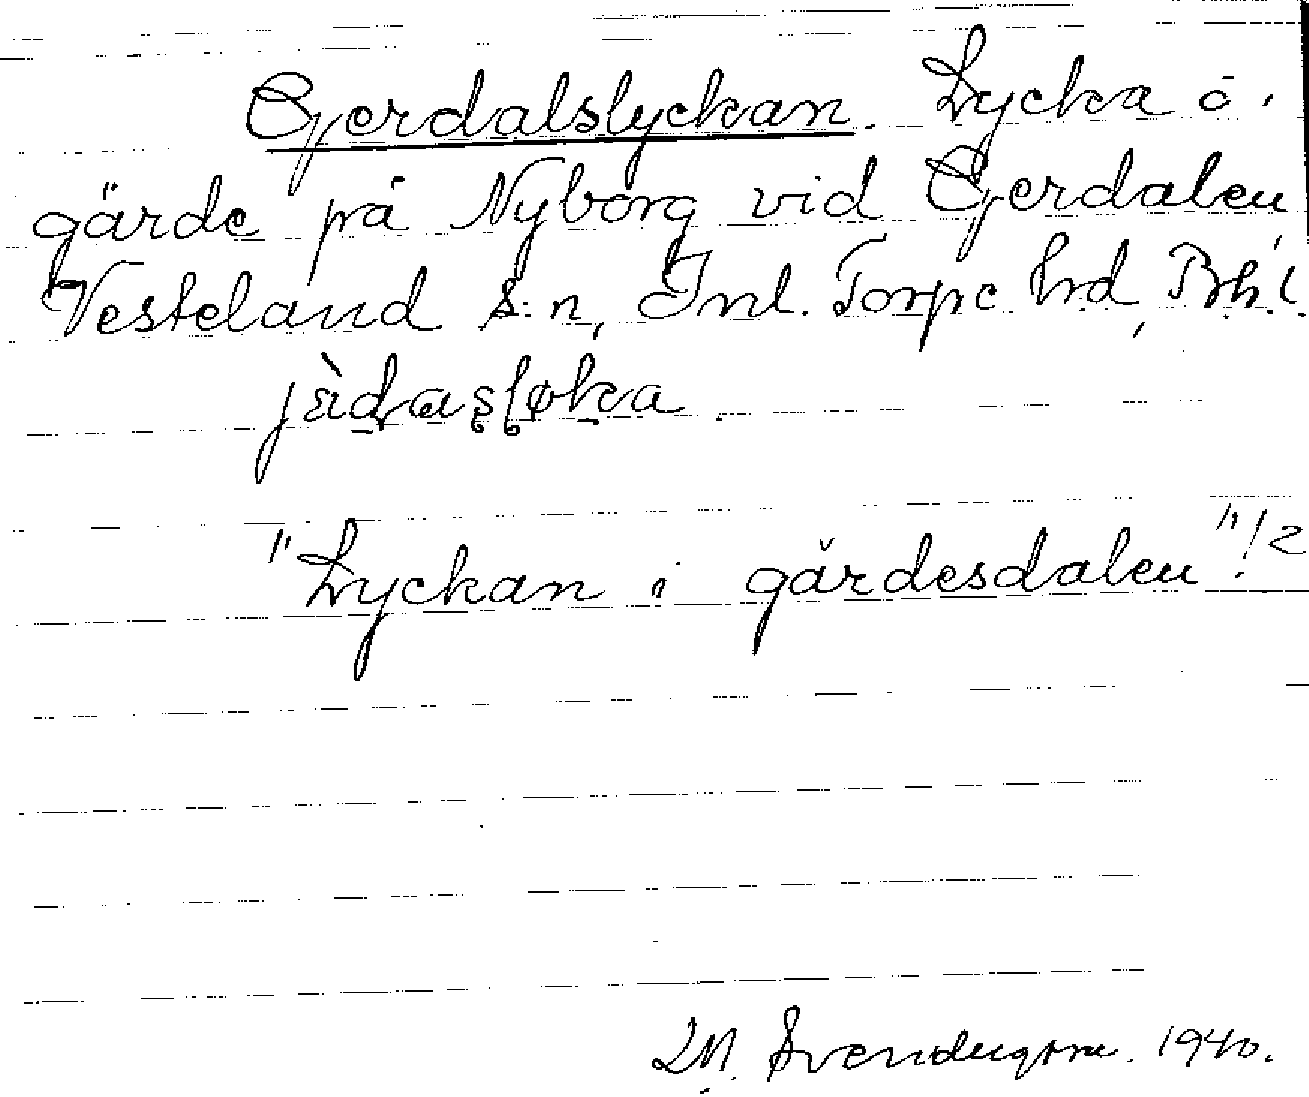 Gjerdalslyckan. Lycka o.
gärde på Nyborg vid Gjerdalen
Vesteland s:n, Inl. Torpe hrd, Bhl.
jàdasløka
"Lyckan i gärdesdalen"!
1940.